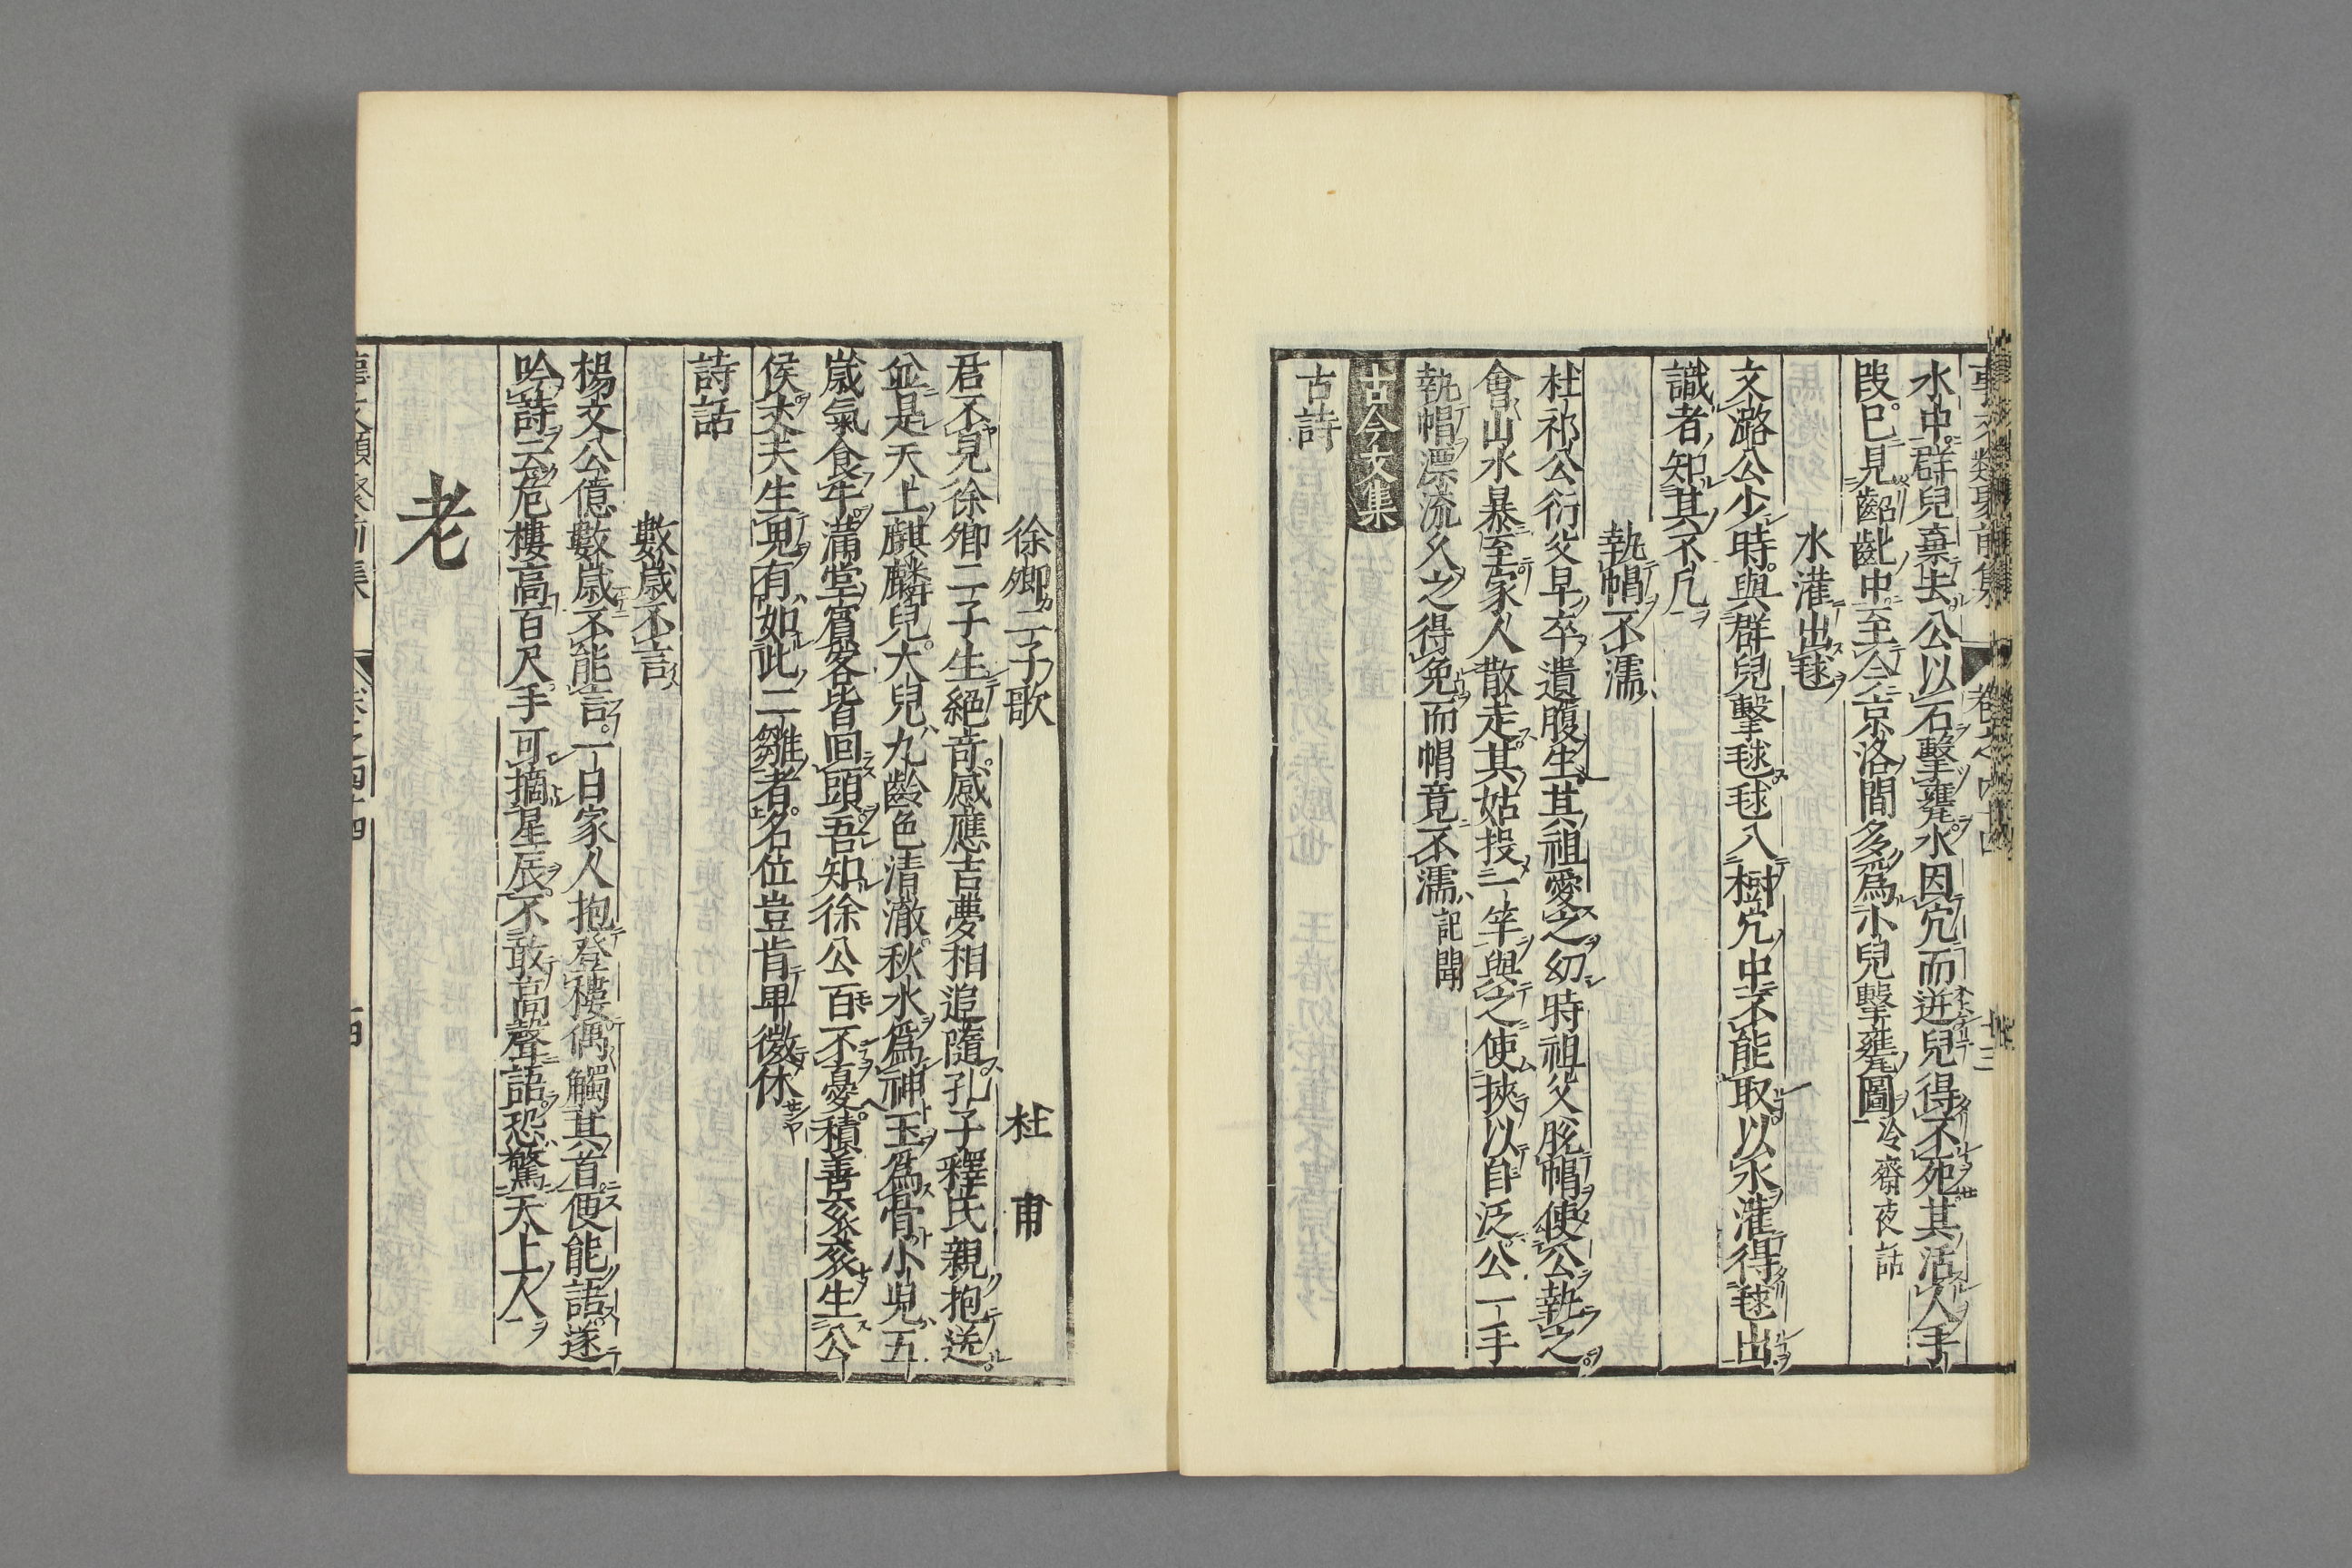 事文類聚前集 卷之四十四 十三
水中群兒棄去公以石擊甕水因穴而迸兒得不死其活人手
段已見齠齔中至今京洛間多爲小兒擊甕圖冷齋夜話
水灌出毬
文潞公少時與群兒擊毬毬入樹穴中不能取以水灌得毬出
識者知其不凡
執帽不濡
杜祁公衍父早卒遺腹生其祖愛之幼時祖父脫帽使公執之
會山水暴至家人散走其姑投一竿與之使挾以自泛公一手
執帽漂流久之得免而帽竟不濡記聞
古今文集
古詩
徐卿二子歌 杜甫
君不見徐卿二子生絕奇感應吉夢相追隨孔子釋氏親抱送
並是天上麒麟兒大兒九齡色清澈秋水爲神玉爲骨小兒五
歲氣食牛滿堂賓客皆回頭吾知徐公百不憂積善袞袞生公
侯丈夫生兒有如此二雛者名位豈肯卑微休
詩話
數歲不言
楊文公億數歲不能言一日家人抱登樓偶觸其首便能語遂
吟詩云危樓高百尺手可摘星辰不敢高聲語恐驚天上人
老